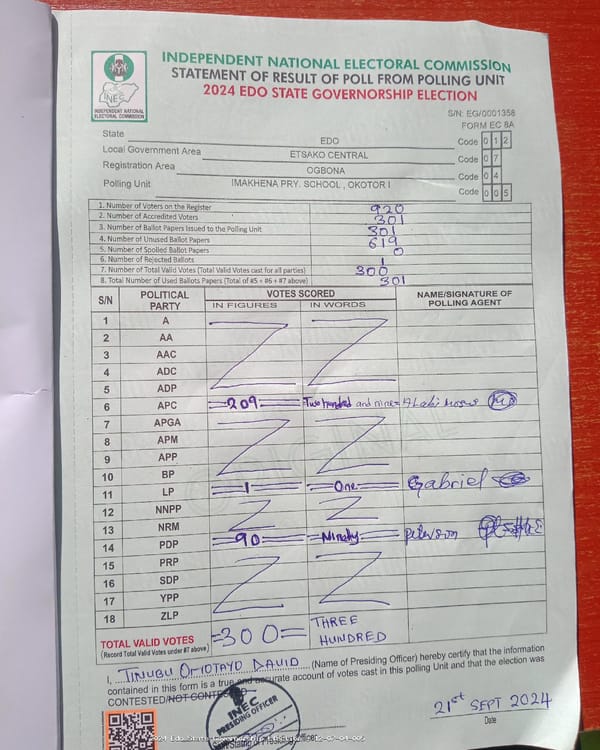 INDEPENDENT NATIONAL ELECTORAL COMMISSION
STATEMENT OF RESULT OF POLL FROM POLLING UNIT
2024 EDO STATE GOVERNORSHIP ELECTION
INEC
INDEPENDENT NATIONAL
ELECTORAL COMMISSION
S/N: EG/0001358
FORM EC 8A
State EDO Code 0 1 2
Local Government Area ETSAKO CENTRAL Code 0 7
Registration Area OGBONA Code 0 4
Polling Unit IMAKHENA PRY. SCHOOL , OKOTOR I Code 0 0 5
1. Number of Voters on the Register 920
2. Number of Accredited Voters 301
3. Number of Ballot Papers Issued to the Polling Unit 301
4. Number of Unused Ballot Papers 619
5. Number of Spoiled Ballot Papers 0
6. Number of Rejected Ballots 1
7. Number of Total Valid Votes (Total Valid Votes cast for all parties) 300
8. Total Number of Used Ballots Papers (Total of #5 + #6 + #7 above) 301
S/N POLITICAL PARTY VOTES SCORED NAME/SIGNATURE OF POLLING AGENT
IN FIGURES IN WORDS
1 A
2 AA
3 AAC
4 ADC
5 ADP
6 APC =209= Two hundred and nine=
7 APGA
8 APM
9 APP
10 BP
11 LP =1= =One= Gabriel
12 NNPP
13 NRM
14 PDP =90= =Ninety= Peterson
15 PRP
16 SDP
17 YPP
18 ZLP
TOTAL VALID VOTES =300= THREE HUNDRED
(Record Total Valid Votes under #7 above)
I, TINUBU OMOTAYO DAVID (Name of Presiding Officer) hereby certify that the information
contained in this form is a true and accurate account of votes cast in this polling Unit and that the election was
CONTESTED/NOT CONTESTED
INEC
PRESIDING OFFICER
21st SEPT 2024
Date